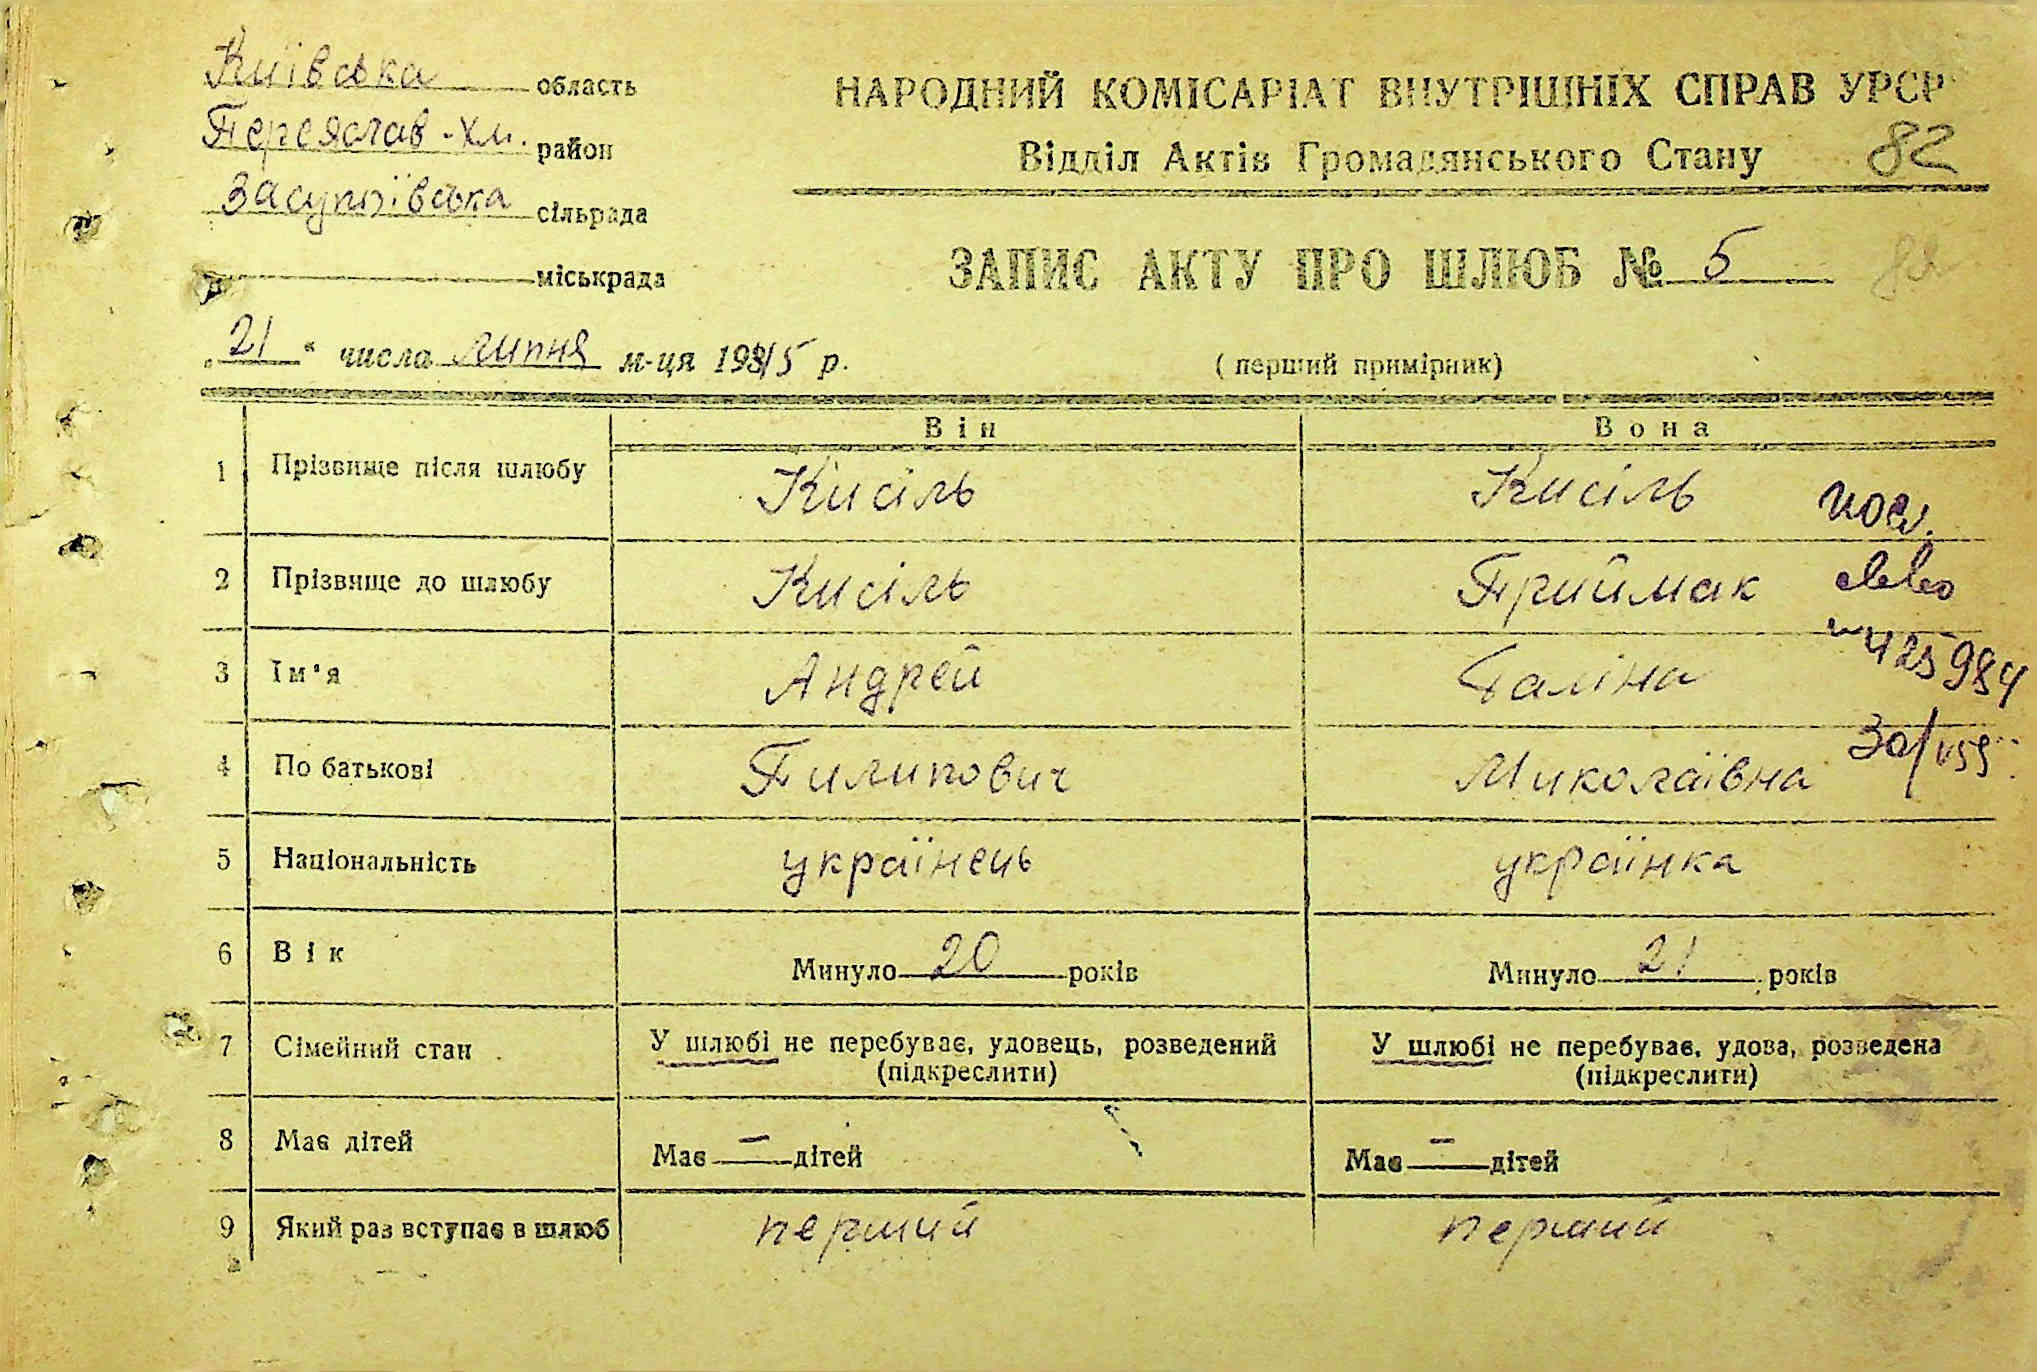 Київська область
Переяслав-Хм. район
Засупоївська сільрада
міськрада
НАРОДНИЙ КОМІСАРІАТ ВНУТРІШНІХ СПРАВ УРСР
Відділ Актів Громадянського Стану 82
ЗАПИС АКТУ ПРО ШЛЮБ № 5
„21“ числа липня м-ця 1945 р.
( перший примірник)
Він Вона
1 Прізвище після шлюбу Кисіль Кисіль
2 Прізвище до шлюбу Кисіль Приймак
3 Ім'я Андрей Галіна
425984
4 По батькові Пилипович Миколаївна
5 Національність українець українка
6 Вік Минуло 20 років Минуло 21 років
7 Сімейний стан У шлюбі не перебуває, удовець, розведений У шлюбі не перебуває, удова, розведена
(підкреслити) (підкреслити)
8 Має дітей Має — дітей Має — дітей
9 Який раз вступає в шлюб перший перший